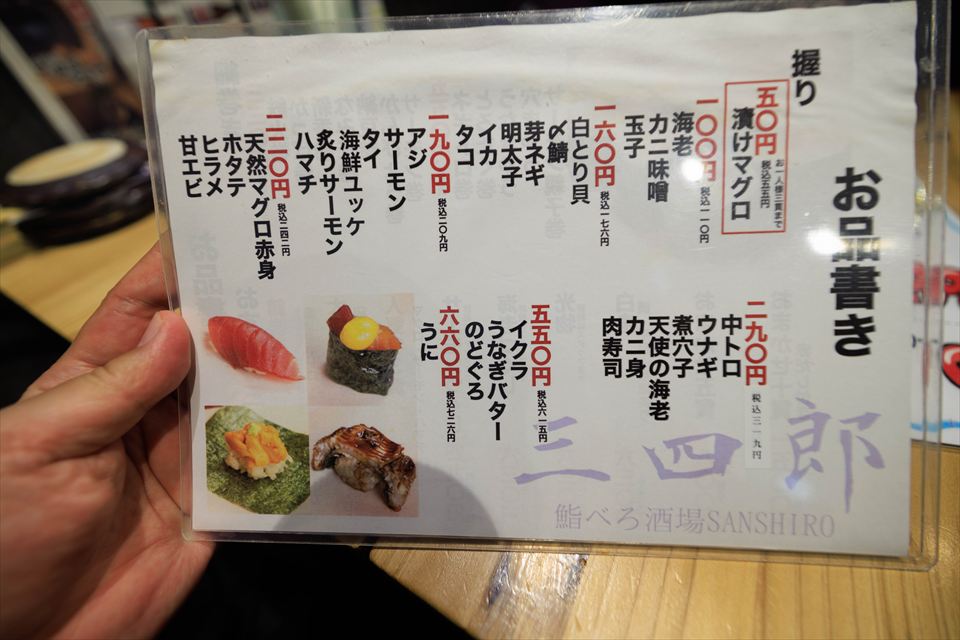 お品書き
握り
五〇円 税込五五円 お一人様三貫まで
漬けマグロ
一〇〇円 税込一一〇円
海老
カニ味噌
玉子
一六〇円 税込一七六円
白とり貝
〆鯖
芽ネギ
明太子
イカ
タコ
一九〇円 税込二〇九円
アジ
サーモン
タイ
海鮮ユッケ
炙りサーモン
ハマチ
二二〇円 税込二四二円
天然マグロ赤身
ホタテ
ヒラメ
甘エビ
二九〇円 税込三一九円
中トロ
ウナギ
煮穴子
天使の海老
カニ身
肉寿司
五五〇円 税込六一五円
イクラ
うなぎバター
のどぐろ
六六〇円 税込七二六円
うに
三四郎
鮨べろ酒場SANSHIRO